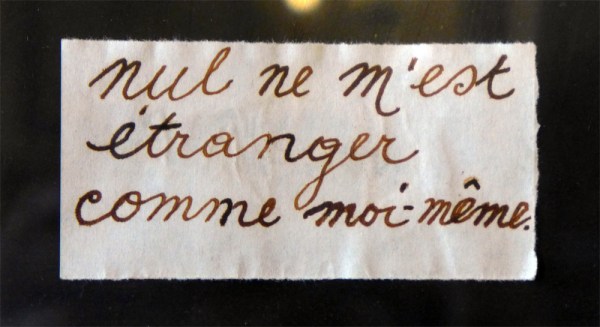 nul ne m'est
étranger
comme moi-même.